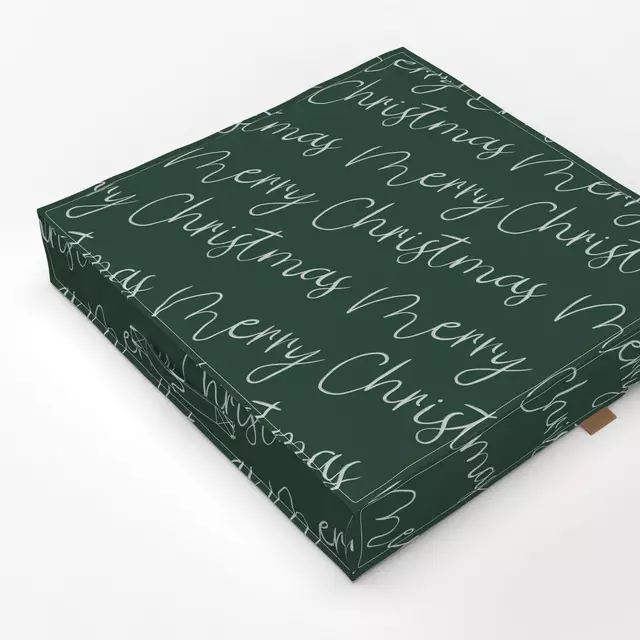 Merry
Christmas
Christmas Merry
Merry Christmas
Merry Christmas Merry
Christmas Merry
Merry Christmas
Christmas
Merry